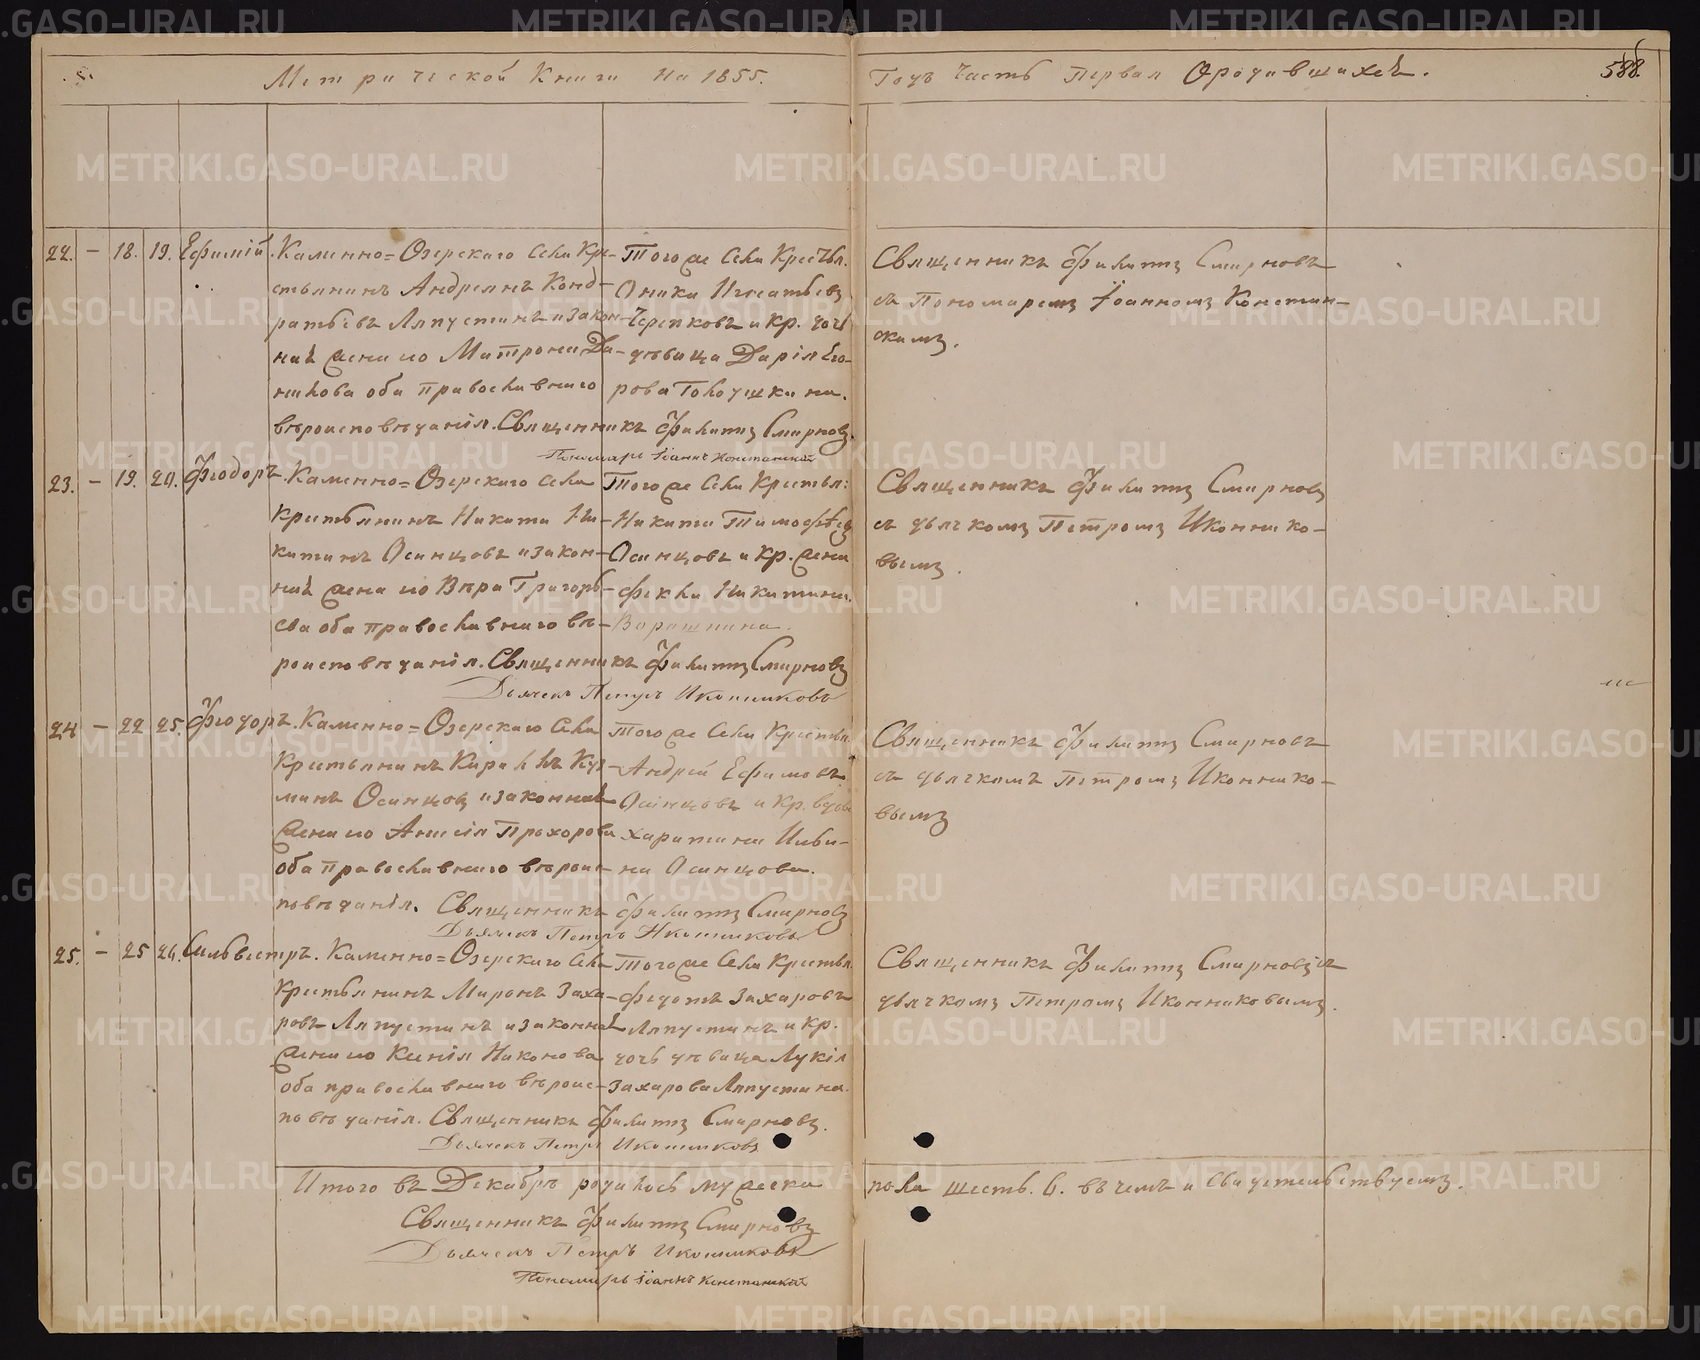 Метрической Книги На 1855.
Годъ Часть Первая О родившихся.
588.
22. – 18. 19. Ефимій. Каменно=Озерскаго Села Кре-
стьянинъ Андреянъ Конд-
ратьевъ Ляпустинъ и закон-
ная жена его Матрона Да-
нилова оба православнаго
вѣроисповѣданія. Священникъ Филиппъ Смирновъ
Пономарь Іоаннъ Констанскій
Того же Села Крестья.
Оника Игнатьевъ
Черепковъ и кр. дочь
дѣвица Дарія Его-
рова Голоушкина.
Священникъ Филиппъ Смирновъ
съ Пономаремъ Іоанномъ Констан-
скимъ.
23. – 19. 20. Феодоръ. Каменно=Озерскаго Села
Крестьянинъ Никита Ни-
китинъ Осинцовъ и закон-
ная жена его Вѣра Григорь-
ева оба православнаго вѣ-
роисповѣданія. Священникъ Филиппъ Смирновъ
Дьячекъ Петръ Иконниковъ
Того же Села Крестьян:
Никита Тимофѣевъ
Осинцовъ и кр. жена
Фекла Никитина
Священникъ Филиппъ Смирновъ
съ дьячкомъ Петромъ Иконнико-
вымъ.
24 – 22 25. Феодоръ. Каменно=Озерскаго Села
Крестьянинъ Кириллъ Куз-
минъ Осинцовъ и законная
жена его Анисія Прохорова
оба православнаго вѣроис-
повѣданія. Священникъ Филиппъ Смирновъ
Дьячекъ Петръ Иконниковъ
Того же Села Крестьян.
Андрей Ефимовъ
Осинцовъ и кр. вдова
Харитина
на Осинцова.
Священникъ Филиппъ Смирновъ
съ дьячкомъ Петромъ Иконнико-
вымъ
25. – 25 26. Сильвестръ. Каменно=Озерскаго Села
Крестьянинъ Миронъ Заха-
ровъ Ляпустинъ и законная
жена его Ксенія Никонова
оба православнаго вѣроис-
повѣданія. Священникъ Филиппъ Смирновъ.
Дьячекъ Петръ Иконниковъ
Того же Села Крестьян.
Федотъ Захаровъ
Ляпустинъ и кр.
дочь дѣвица Лукія
Захарова Ляпустина.
Священникъ Филиппъ Смирновъ съ
дьячкомъ Петромъ Иконниковымъ.
Итого въ Декабрѣ родилось мужеска
пола шесть. 6. въ чемъ и свидетельствуемъ.
Священникъ Филиппъ Смирновъ
Дьячекъ Петръ Иконниковъ
Пономарь Іоаннъ Констанскій
METRIKI.GASO-URAL.RU